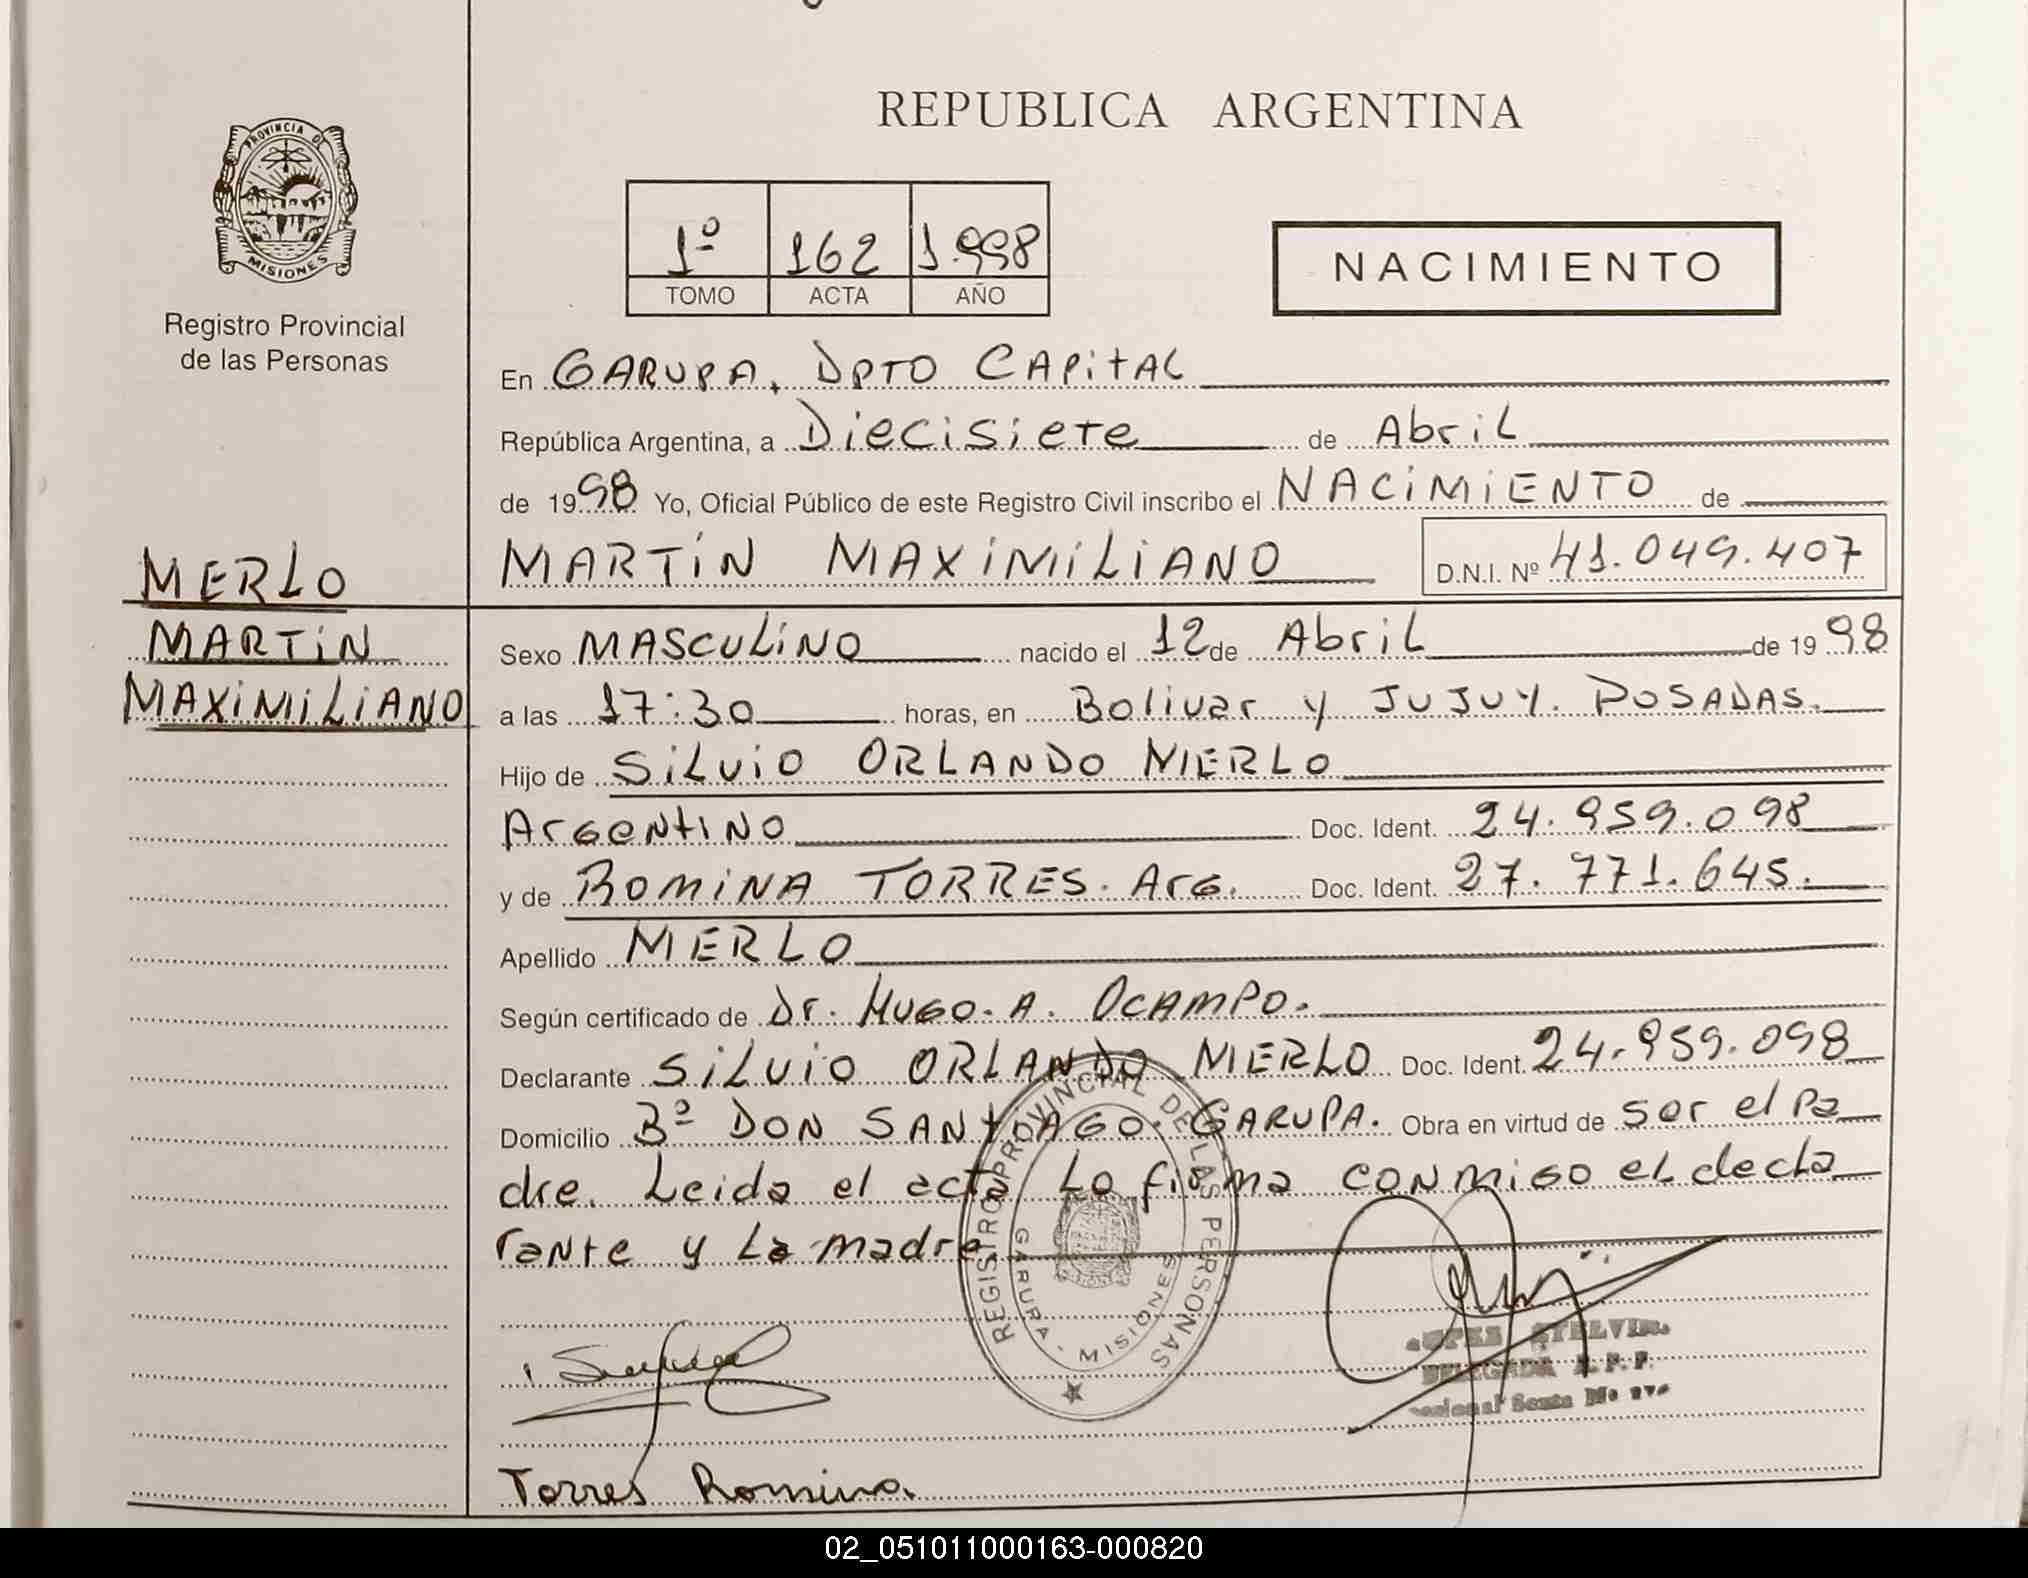 REPUBLICA ARGENTINA
PROVINCIA DE
MISIONES
Registro Provincial
de las Personas
1º 162 1.998
TOMO ACTA AÑO
NACIMIENTO
En GARUPA, DPTO CAPITAL
República Argentina, a Diecisiete de Abril
de 1998 Yo, Oficial Público de este Registro Civil inscribo el NACIMIENTO de
MARTÍN MAXIMILIANO D.N.I. Nº 41.049.407
MERLO
MARTIN
MAXIMILIANO
Sexo MASCULINO nacido el 12 de Abril de 1998
a las 17:30 horas, en Bolivar y JUJUY. POSADAS.
Hijo de SILVIO ORLANDO MERLO
Argentino Doc. Ident. 24.959.098
y de ROMINA TORRES. Arg. Doc. Ident. 27.771.645.
Apellido MERLO
Según certificado de Dr. HUGO. A. OCAMPO.
Declarante SILVIO ORLANDO MERLO Doc. Ident. 24.959.098
Domicilio Bº DON SANTIAGO. GARUPA. Obra en virtud de ser el pa
dre. Leida el acta lo firma conmigo el decla
rante y la madre
REGISTRO PROVINCIAL DE LAS PERSONAS
GARUPA - MISIONES
DELEGADA R. P. P.
Torres Romina.
02_051011000163-000820